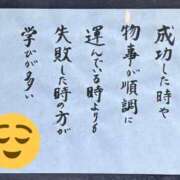 成功した時や
物事が順調に
運んでいる時よりも
失敗した時の方が
学びが多い